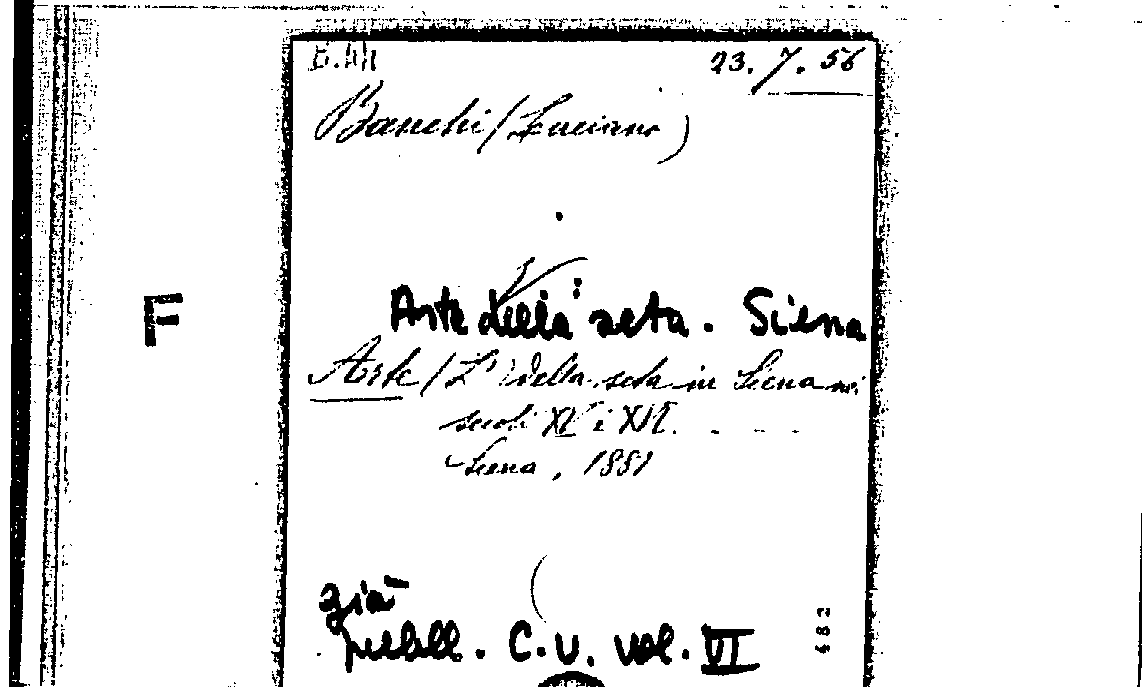 B.44
23.7.56
Banchi (Luciano)
Arte della seta. Siena
F
Arte (L') della seta in Siena nei
secoli XV e XVI.
Siena, 1881
già
pubbl. C.V. vol. VI
682